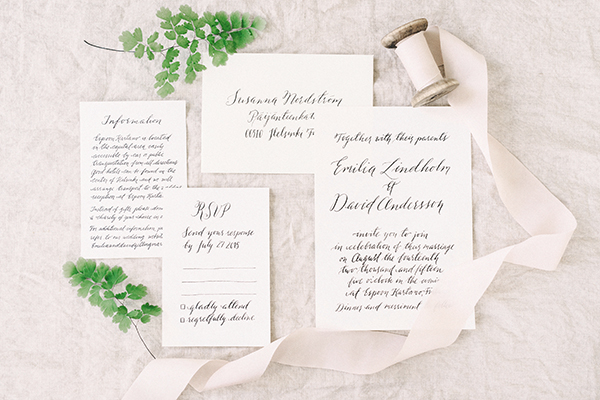 Information
Espoon Kartano is located
in the capital area, easily
accessible by car & public
transportation from all directions
Good hotels can be found in the
centre of Helsinki and we will
arrange transport to the
reception at Espoon Kartano
Instead of gifts, please
a charity of your choice
For additional information, please
refer to our wedding
Susanna Nordström
00510 Helsinki
RSVP
Send your response
by July 27 2015
gladly attend
regretfully decline
Together with their parents
Emilia Lindholm
&
David Andersson
invite you to join
in celebration of their marriage
on August the fourteenth
two thousand and fifteen
5 o'clock in the
at Espoon Kartano,
Dinner and merriment